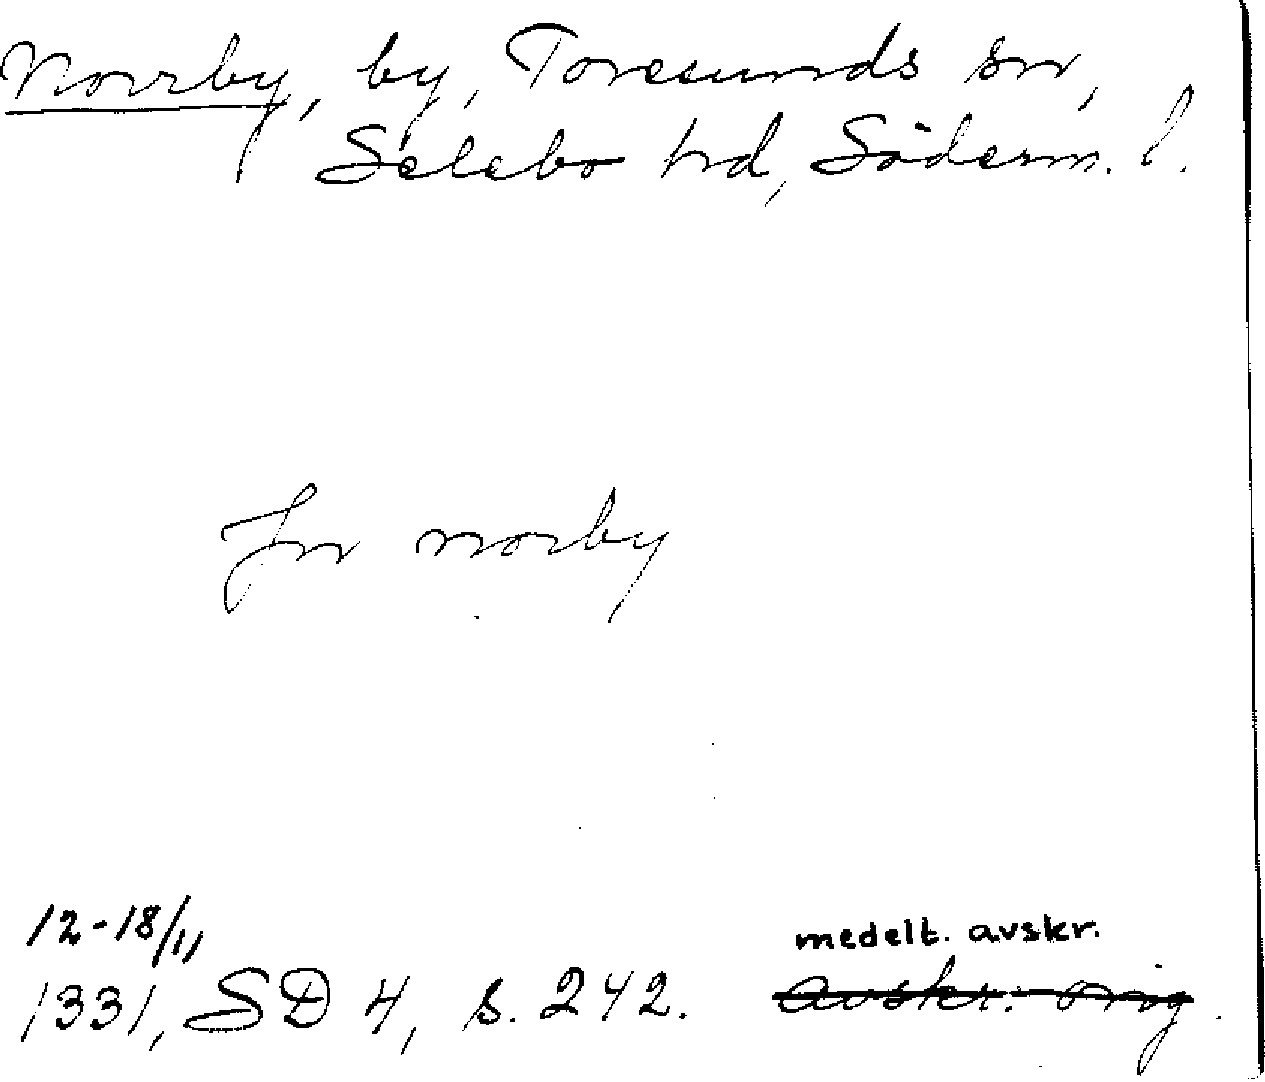 Norrby, by, Toresunds sn,
Selebo hd, Söderm. l.
Jn norby
12-18/11
medelt. avskr.
1331, SD 4, s. 242. avskr. orig.